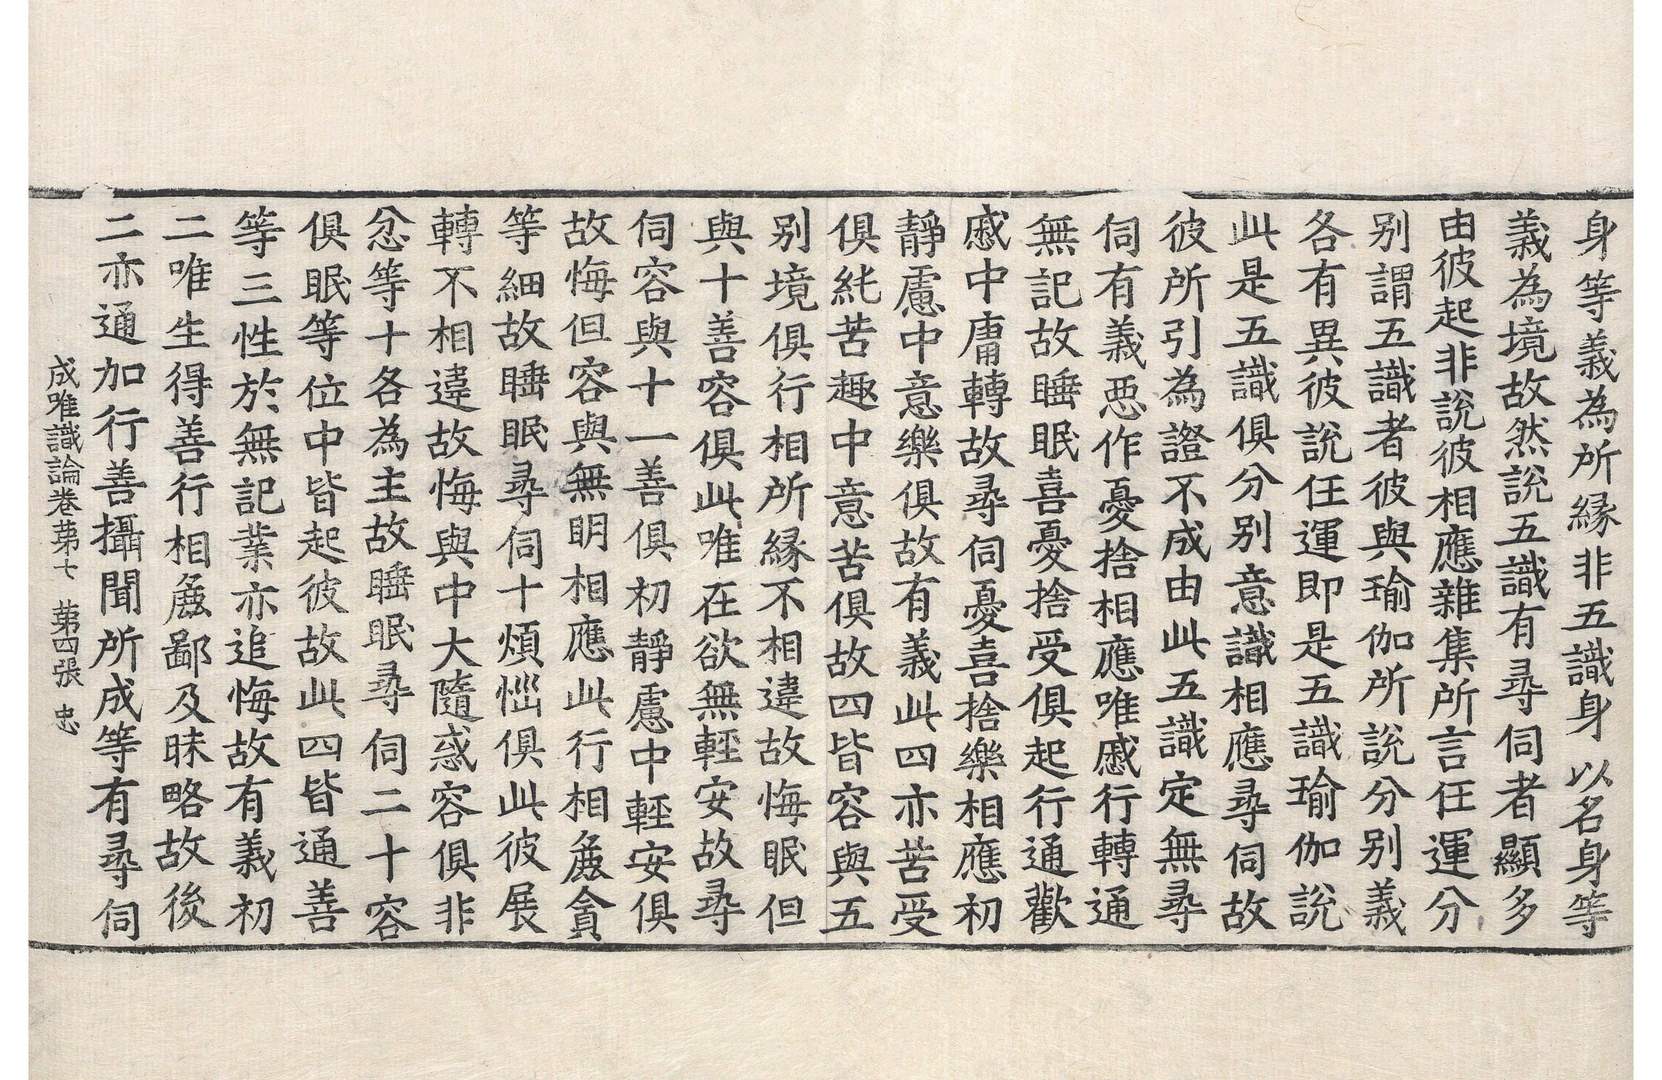 身等義為所緣非五識身以名身等
義為境故然說五識有尋伺者顯多
由彼起非說彼相應雜集所言任運分
别謂五識者彼與瑜伽所說分别義
各有異彼說任運即是五識瑜伽說
此是五識俱分别意識相應尋伺故
彼所引為證不成由此五識定無尋
伺有義惡作憂捨相應唯慼行轉通
無記故睡眠喜憂捨受俱起行通歡
慼中庸轉故尋伺憂喜捨樂相應初
靜慮中意樂俱故有義此四亦苦受
俱純苦趣中意苦俱故四皆容與五
别境俱行相所緣不相違故悔眠但
與十善容俱此唯在欲無輕安故尋
伺容與十一善俱初靜慮中輕安俱
故悔但容與無明相應此行相麁貪
等細故睡眠尋伺十煩惱俱此彼展
轉不相違故悔與中大隨惑容俱非
忿等十各為主故睡眠尋伺二十容
俱眠等位中皆起彼故此四皆通善
等三性於無記業亦追悔故有義初
二唯生得善行相麁鄙及昧略故後
二亦通加行善攝聞所成等有尋伺
成唯識論卷苐七 苐四張 忠